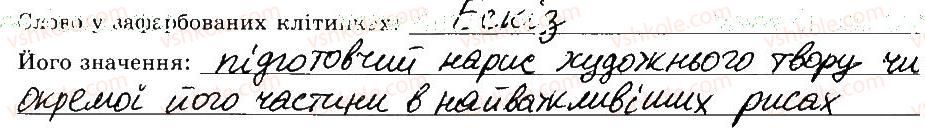 Слово у зафарбованих клітинках: Ескіз
Його значення: підготовчий нарис художнього твору чи
окремої його частини в найважливіших рисах